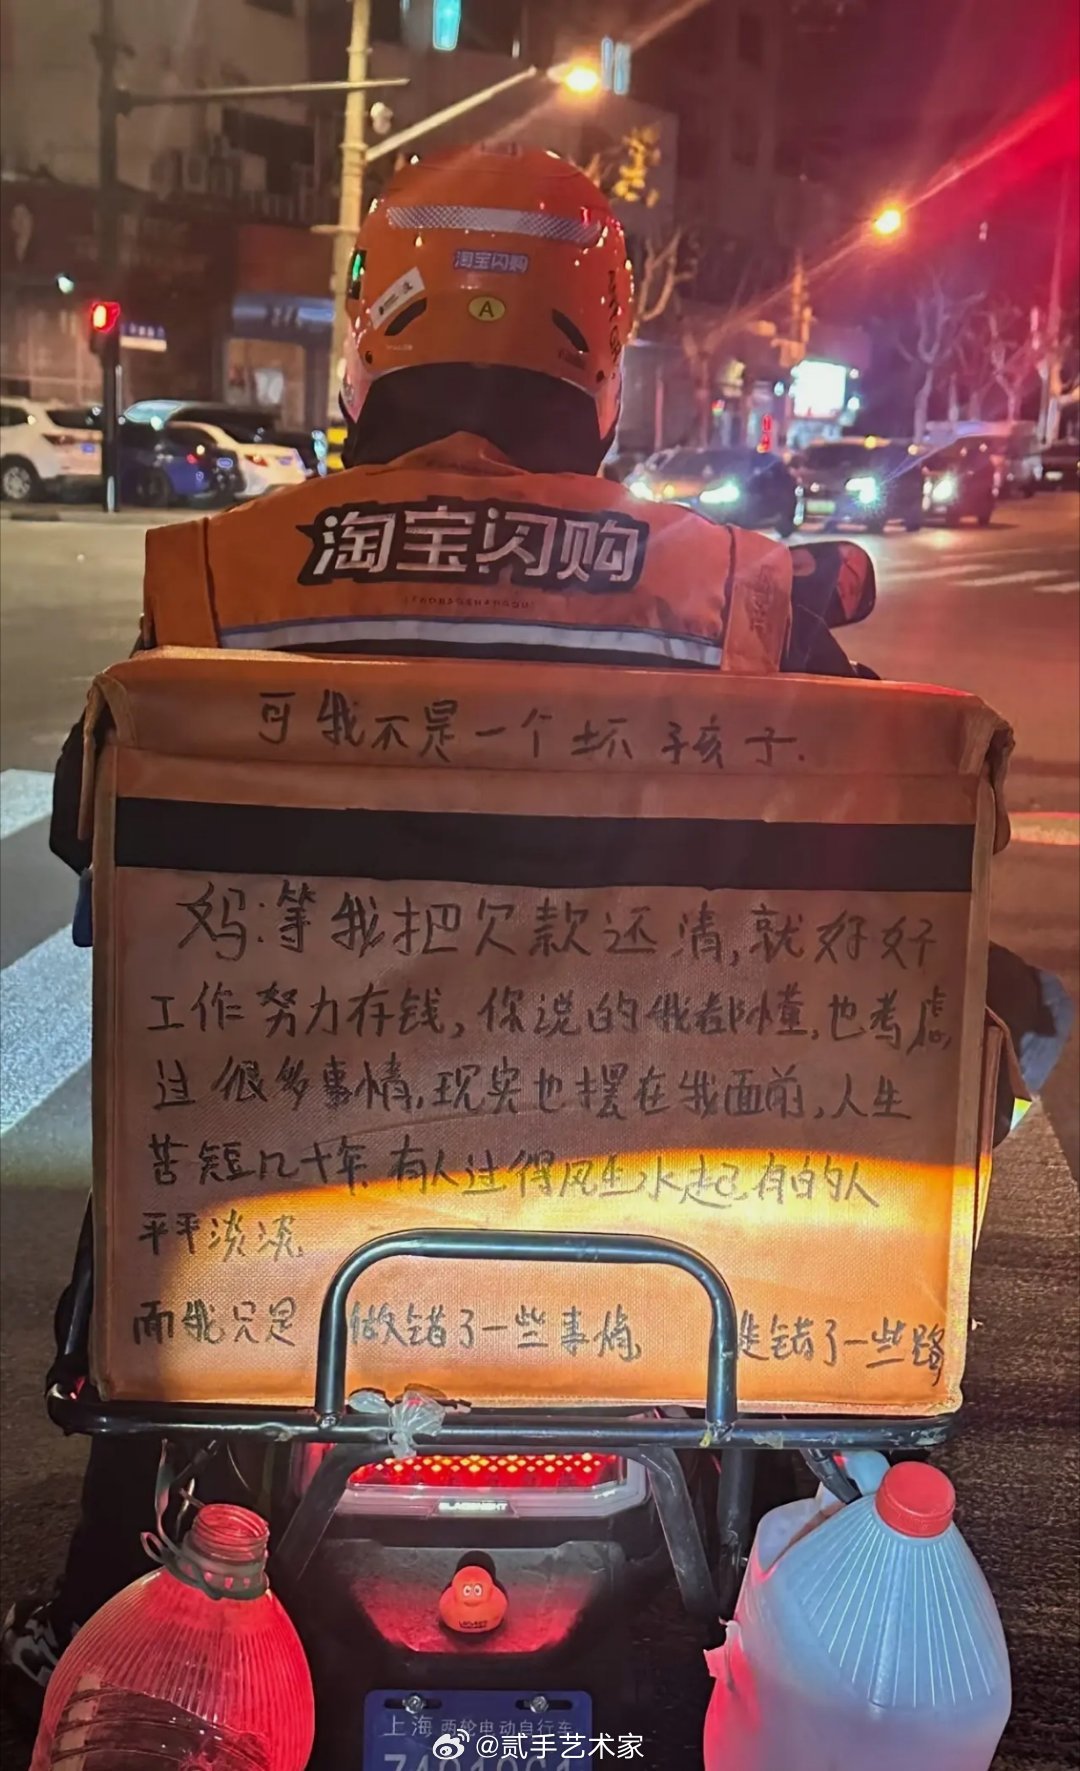 淘宝闪购
A
淘宝闪购
TAOBAOSHANGOU
可我不是一个坏孩子.
妈:等我把欠款还清,就好好
工作努力存钱,你说的我都懂,也考虑
过很多事情,现实也摆在我面前,人生
苦短几十年.有人过得风生水起有的人
平平淡淡
而我只是 做错了一些事情 走错了一些路
上海 两轮电动自行车
@贰手艺术家